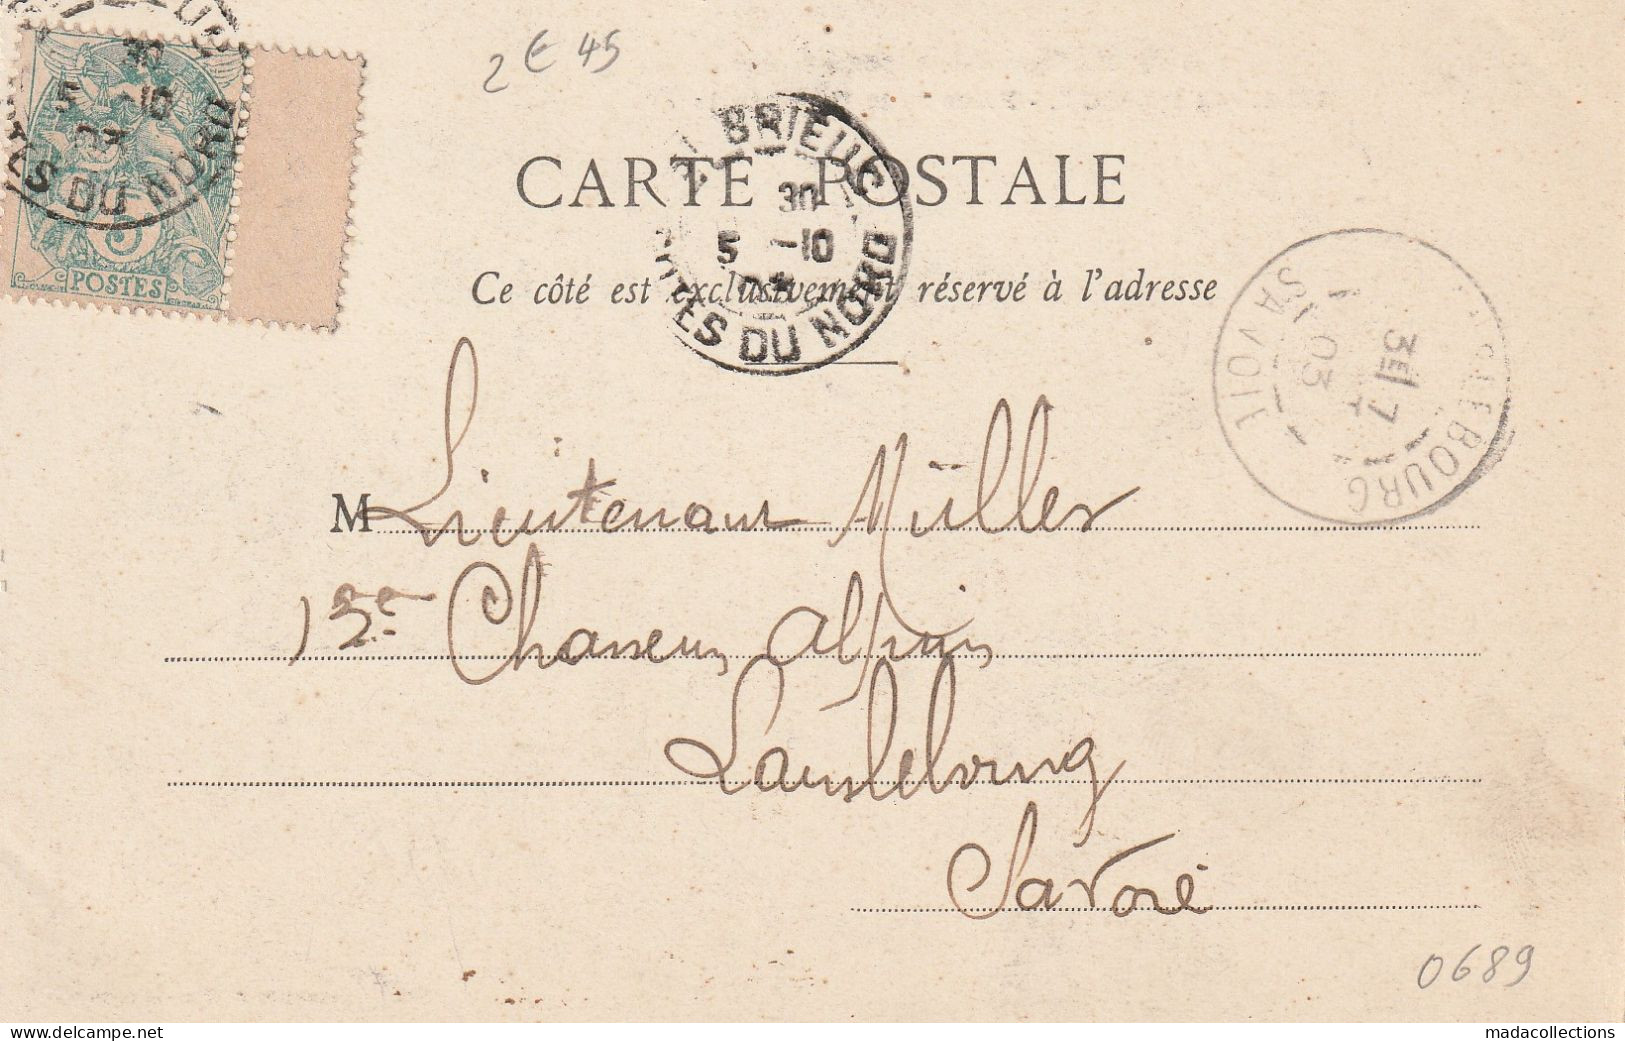 2 € 45
BRIEUC
30
5 -10
03
CÔTES DU NORD
5
POSTES
CARTE POSTALE
BRIEUC
30
5 -10
03
CÔTES DU NORD
Ce côté est exclusivement réservé à l'adresse
LANSLEBOURG
03
SAVOIE
M Lieutenant Müller
12e Chasseurs alpins
Lanslebourg
Savoie
0689
madacollections